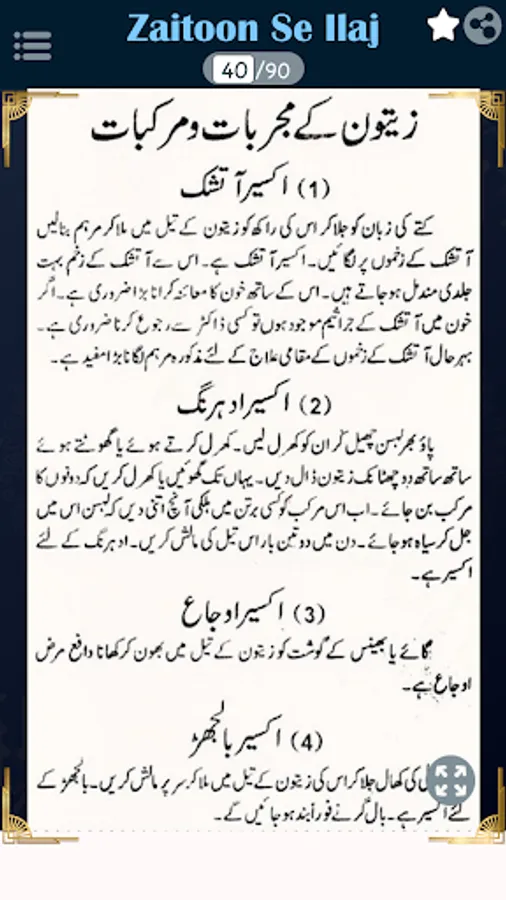 Zaitoon Se Ilaj
40/90
زیتون کے مجربات و مرکبات
(1) اکسیر آتشک
کتے کی زبان کو جلا کر اس کی راکھ کو زیتون کے تیل میں ملا کر مرہم بنالیں
آتشک کے زخموں پر لگائیں۔ اکسیر آتشک ہے۔ اس سے آتشک کے زخم بہت
جلدی مندمل ہو جاتے ہیں۔ اس کے ساتھ خون کا معائنہ کرانا بڑا ضروری ہے۔ اگر
خون میں آتشک کے جراثیم موجود ہوں تو کسی ڈاکٹر سے رجوع کرنا ضروری ہے۔
بہرحال آتشک کے زخموں کے مقامی علاج کے لئے مذکورہ مرہم لگانا بڑا مفید ہے۔
(2) اکسیر ادہرنگ
پاؤ بھر لہسن چھیل کر ان کو کھرل لیں۔ کھرل کرتے ہوئے یا گھوٹتے ہوئے
ساتھ ساتھ دو چھٹانک زیتون ڈال دیں۔ یہاں تک گھوئیں یا کھرل کریں کہ دونوں کا
مرکب بن جائے۔ اب اس مرکب کو کسی برتن میں ہلکی آنچ اتنی دیں کہ لہسن اس میں
جل کر سیاہ ہو جائے۔ دن میں دو تین بار اس تیل کی مالش کریں۔ ادہرنگ کے لئے
اکسیر ہے۔
(3) اکسیر اوجاع
گائے یا بھینس کے گوشت کو زیتون کے تیل میں بھون کر کھانا دافع مرض
اوجاع ہے۔
(4) اکسیر بالجھڑ
کی کھال جلا کر اس کی زیتون کے تیل میں ملا کر سر پر مالش کریں۔ بالجھڑ کے
لئے اکسیر ہے۔ بال گرنے فوراً بند ہو جائیں گے۔